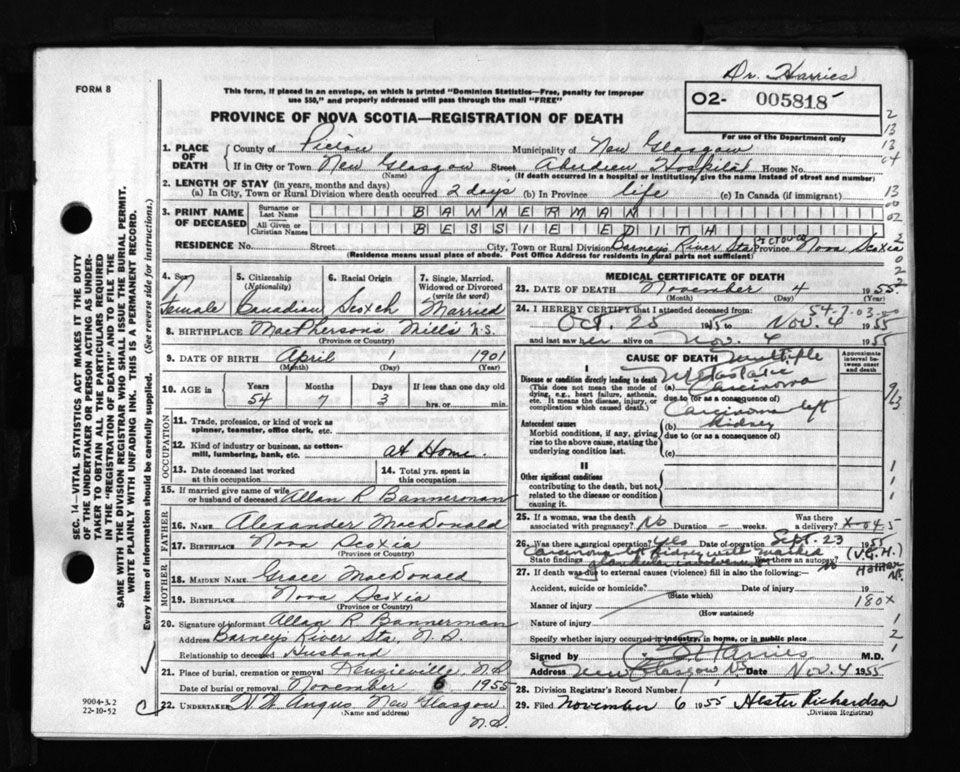 Dr. Harries
FORM 8
This form, if placed in an envelope, on which is printed "Dominion Statistics—Free, penalty for improper
use $50," and properly addressed will pass through the mail "FREE"
02- 005818
For use of the Department only
PROVINCE OF NOVA SCOTIA—REGISTRATION OF DEATH
1. PLACE OF DEATH
County of Pictou Municipality of New Glasgow
If in City or Town New Glasgow Street Aberdeen Hospital House No.
(Name) (If death occurred in a hospital or institution, give the name instead of street and number)
2. LENGTH OF STAY (in years, months and days)
(a) In City, Town or Rural Division where death occurred 2 days (b) In Province life (c) In Canada (if immigrant)
3. PRINT NAME OF DECEASED
Surname or Last Name BANNERMAN
All Given or Christian Names BESSIE EDITH
RESIDENCE No. Street City, Town or Rural Division Barneys River Sta PICTOU Co Province Nova Scotia
(Residence means usual place of abode. Post Office Address for residents in rural parts not sufficient)
4. Sex Female
5. Citizenship (Nationality) Canadian
6. Racial Origin Scotch
7. Single, Married, Widowed or Divorced (write the word) Married
8. BIRTHPLACE MacPhersons Mills N.S.
(Province or Country)
9. DATE OF BIRTH April 1 1901
(Month) (Day) (Year)
10. AGE in Years Months Days If less than one day old
54 7 3 hrs. or min.
OCCUPATION
11. Trade, profession, or kind of work as
spinner, teamster, office clerk, etc.
12. Kind of industry or business, as cotton-
mill, lumbering, bank, etc. At Home.
13. Date deceased last worked
at this occupation
14. Total yrs. spent in
this occupation
15. If married give name of wife
or husband of deceased Allan R Bannerman
FATHER
16. NAME Alexander MacDonald
17. BIRTHPLACE Nova Scotia
(Province or Country)
MOTHER
18. MAIDEN NAME Grace MacDonald
19. BIRTHPLACE Nova Scotia
(Province or Country)
20. Signature of informant Allan R Bannerman
Address Barneys River Sta, N.S.
Relationship to deceased Husband
21. Place of burial, cremation or removal Kenzieville N.S
Date of burial or removal November 6 1955
22. UNDERTAKER H W Angus New Glasgow
(Name and address) N.S.
MEDICAL CERTIFICATE OF DEATH
23. DATE OF DEATH November 4 1955
(Month) (Day) (Year)
24. I HEREBY CERTIFY that I attended deceased from:
54-7-03-00
Oct. 25 1955 to Nov. 4 1955
and last saw her alive on Nov. 4 1955
CAUSE OF DEATH
Approximate interval between onset and death
I
Disease or condition directly leading to death
(This does not mean the mode of
dying, e.g., heart failure, asthenia,
etc. It means the disease, injury, or
complication which caused death.)
multiple
Metastatic
(a) Carcinoma
due to (or as a consequence of)
Antecedent causes
Morbid conditions, if any, giving
rise to the above cause, stating the
underlying condition last.
Carcinoma left
(b) Kidney
due to (or as a consequence of)
(c)
II
Other significant conditions
contributing to the death, but not
related to the disease or condition
causing it.
25. If a woman, was the death
associated with pregnancy? No Duration – weeks. Was there
a delivery?
26. Was there a surgical operation? Yes Date of operation Sept. 23 1955
Carcinoma left Kidney with marked (V.G.H.)
State findings glandular involvement Was there an autopsy? No Halifax N.S.
27. If death was due to external causes (violence) fill in also the following:—
Accident, suicide or homicide? Date of injury 19
(State which)
Manner of injury 180X
(How sustained)
Nature of injury
Specify whether injury occurred in industry, in home, or in public place
Signed by Harries M.D.
Address New Glasgow N.S. Date Nov. 4 1955
28. Division Registrar's Record Number
29. Filed November 6 1955 Hester Richardson
(Division Registrar)
SEC. 14—VITAL STATISTICS ACT MAKES IT THE DUTY
OF THE UNDERTAKER OR PERSON ACTING AS UNDER-
TAKER TO OBTAIN ALL THE PARTICULARS REQUIRED
IN THE "REGISTRATION OF DEATH" AND TO FILE THE
SAME WITH THE DIVISION REGISTRAR WHO SHALL ISSUE THE BURIAL PERMIT.
WRITE PLAINLY WITH UNFADING INK. THIS IS A PERMANENT RECORD.
Every item of information should be carefully supplied. (See reverse side for instructions.)
9004-3.2
22-10-52